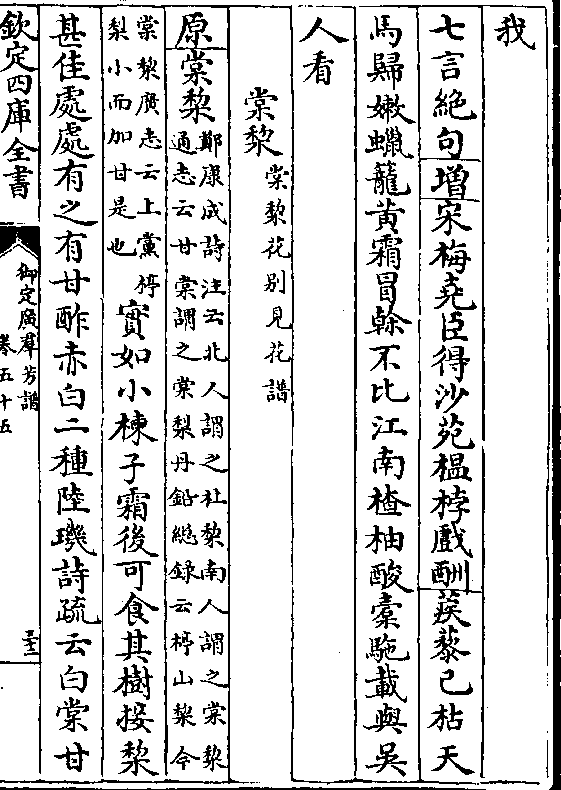 我
七言絶句增宋梅堯臣得沙苑榲桲戲酬蒺藜已枯天
馬歸嫩蠟籠黃霜冒榦不比江南楂柚酸橐駞載與吳
人看
棠棃棠棃花别見花譜
原棠棃鄭康成詩注云北人謂之杜棃南人謂之棠棃
通志云甘棠謂之棠梨丹鉛總録云梈山棃今
棠棃廣志云上黨梈
梨小而加甘是也
實如小楝子霜後可食其樹接棃
甚佳處處有之有甘酢赤白二種陸璣詩疏云白棠甘
欽定四庫全書
御定廣羣芳譜
卷五十五